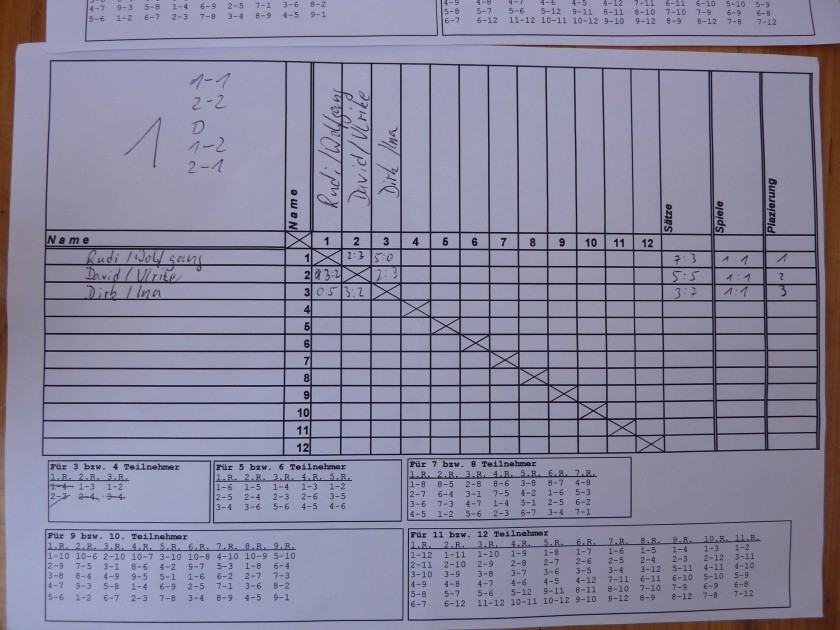 4-7 9-3 5-8 1-4 6-9 2-5 7-1 3-6 8-2
5-6 1-2 6-7 2-3 7-8 3-4 8-9 4-5 9-1
5-8 5-7 5-6 5-12 9-11 8-11 8-10 7-10 7-9 6-9 6-8
6-7 6-12 11-12 10-11 10-12 9-10 9-12 8-9 8-12 7-8 7-12
1
1-1
2-2
D
1-2
2-1
Name
Rudi/Wolfgang
David/Ulrike
Dirk/Ina
Sätze
Spiele
Plazierung
Name 1 2 3 4 5 6 7 8 9 10 11 12
Rudi/Wolfgang 1 2:3 5:0 7:3 1:1 1
David/Ulrike 2 3:2 2:3 5:5 1:1 2
Dirk/Ina 3 0:5 3:2 3:7 1:1 3
4
5
6
7
8
9
10
11
12
Für 3 bzw. 4 Teilnehmer
1.R. 2.R. 3.R.
1-4 1-3 1-2
2-3 2-4 3-4
Für 5 bzw. 6 Teilnehmer
1.R. 2.R. 3.R. 4.R. 5.R.
1-6 1-5 1-4 1-3 1-2
2-5 2-4 2-3 2-6 3-5
3-4 3-6 5-6 4-5 4-6
Für 7 bzw. 8 Teilnehmer
1.R. 2.R. 3.R. 4.R. 5.R. 6.R. 7.R.
1-8 8-5 2-8 8-6 3-8 8-7 4-8
2-7 6-4 3-1 7-5 4-2 1-6 5-3
3-6 7-3 4-7 1-4 5-1 2-5 6-2
4-5 1-2 5-6 2-3 6-7 3-4 7-1
Für 9 bzw. 10. Teilnehmer
1.R. 2.R. 3.R. 4.R. 5.R. 6.R. 7.R. 8.R. 9.R.
1-10 10-6 2-10 10-7 3-10 10-8 4-10 10-9 5-10
2-9 7-5 3-1 8-6 4-2 9-7 5-3 1-8 6-4
3-8 8-4 4-9 9-5 5-1 1-6 6-2 2-7 7-3
4-7 9-3 5-8 1-4 6-9 2-5 7-1 3-6 8-2
5-6 1-2 6-7 2-3 7-8 3-4 8-9 4-5 9-1
Für 11 bzw. 12 Teilnehmer
1.R. 2.R. 3.R. 4.R. 5.R. 6.R. 7.R. 8.R. 9.R. 10.R. 11.R.
1-12 1-11 1-10 1-9 1-8 1-7 1-6 1-5 1-4 1-3 1-2
2-11 2-10 2-9 2-8 2-7 2-6 2-5 2-4 2-3 2-12 3-11
3-10 3-9 3-8 3-7 3-6 3-5 3-4 3-12 5-11 4-11 4-10
4-9 4-8 4-7 4-6 4-5 4-12 7-11 6-11 6-10 5-10 5-9
5-8 5-7 5-6 5-12 9-11 8-11 8-10 7-10 7-9 6-9 6-8
6-7 6-12 11-12 10-11 10-12 9-10 9-12 8-9 8-12 7-8 7-12